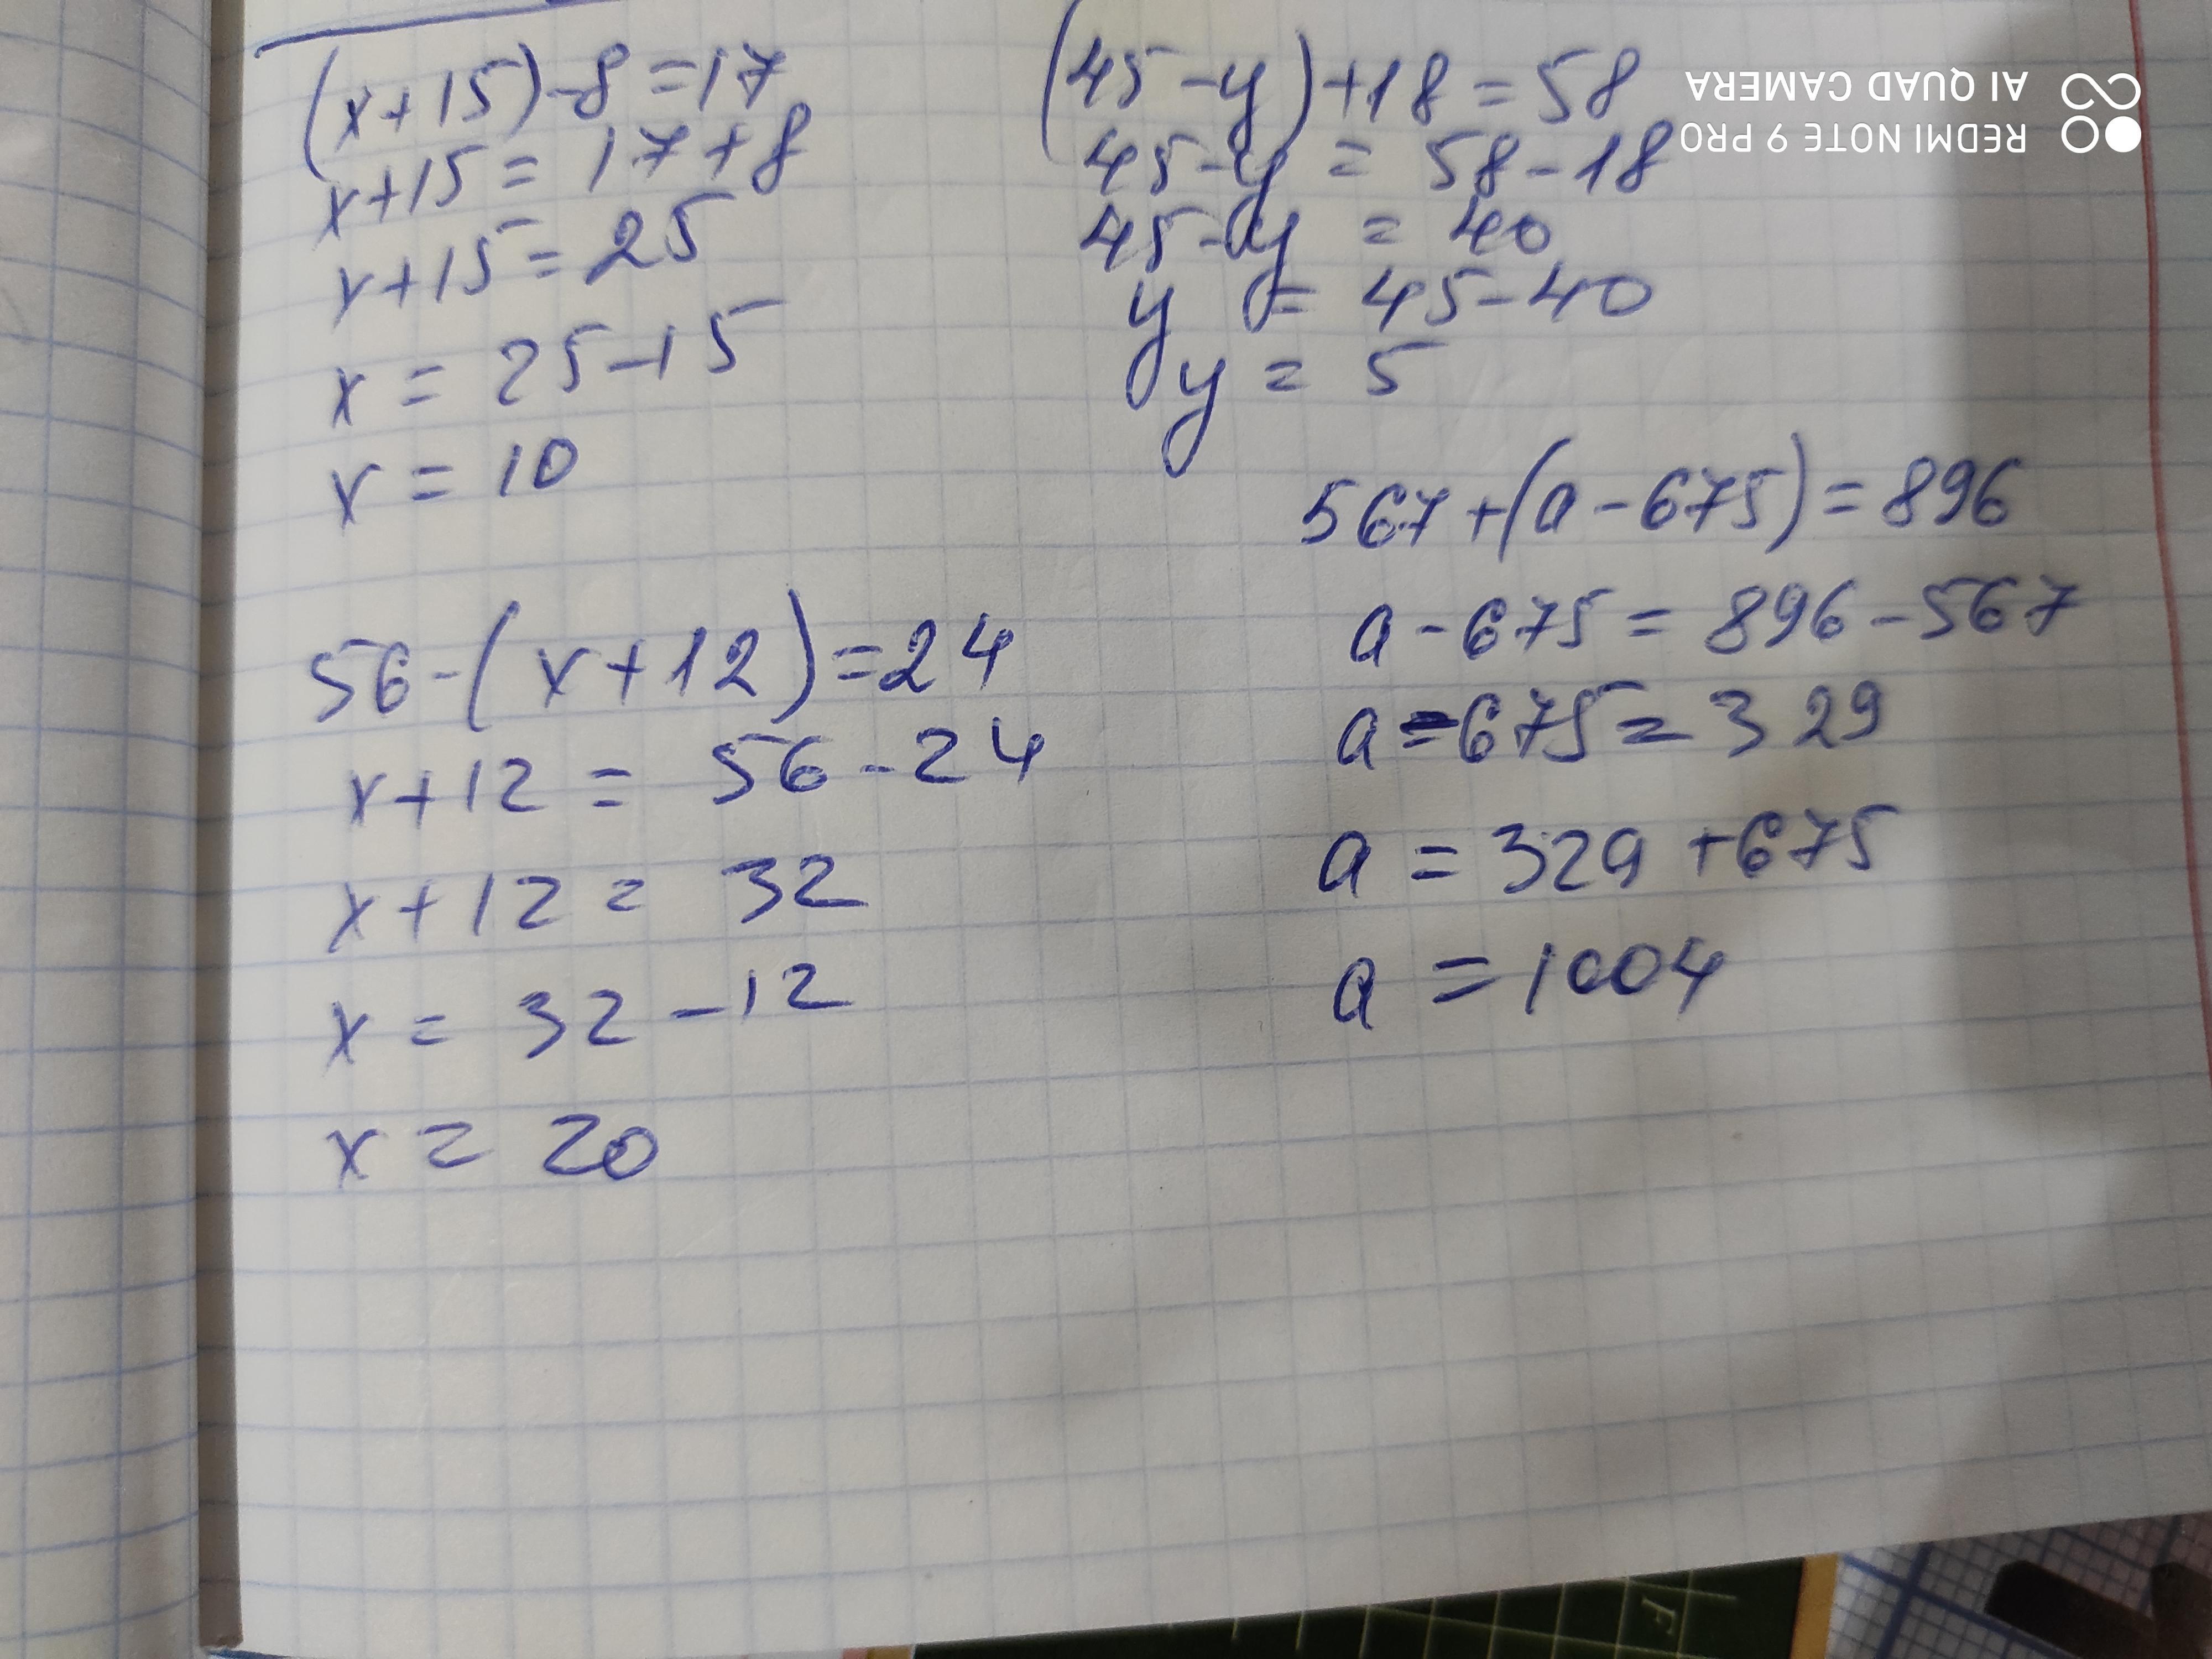 (x+15)-8=17
x+15=17+8
x+15=25
x=25-15
x=10
(45-y)+18=58
45-y=58-18
45-y=40
y=45-40
y=5
56-(x+12)=24
x+12=56-24
x+12=32
x=32-12
x=20
567+(a-675)=896
a-675=896-567
a-675=329
a=329+675
a=1004
REDMI NOTE 9 PRO
AI QUAD CAMERA
F